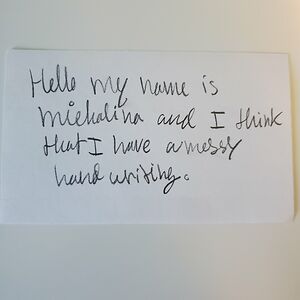 Hello my name is
michalina and I think
that I have a messy
hand writing.